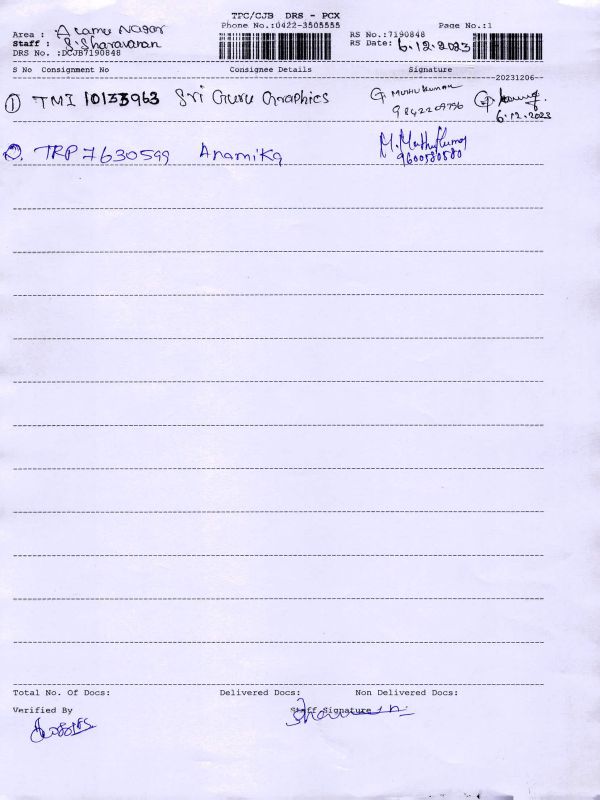 TPC/CJB DRS - PCX
Phone No.:0422-3505555
Page No.:1
Area : Alamu Nagar
Staff : S. Sharavanan
DRS No. :DCJB7190848
RS No.:7190848
RS Date: 6.12.2023
S No Consignment No Consignee Details Signature
20231206
1 TMI 10133963 Sri Guru Graphics G. MUHUKUMAR
9842209796
6.12.2023
2. TRP 7630599 Anamika M. Muthukumar
9600580580
Total No. Of Docs: Delivered Docs: Non Delivered Docs:
Verified By Staff Signature